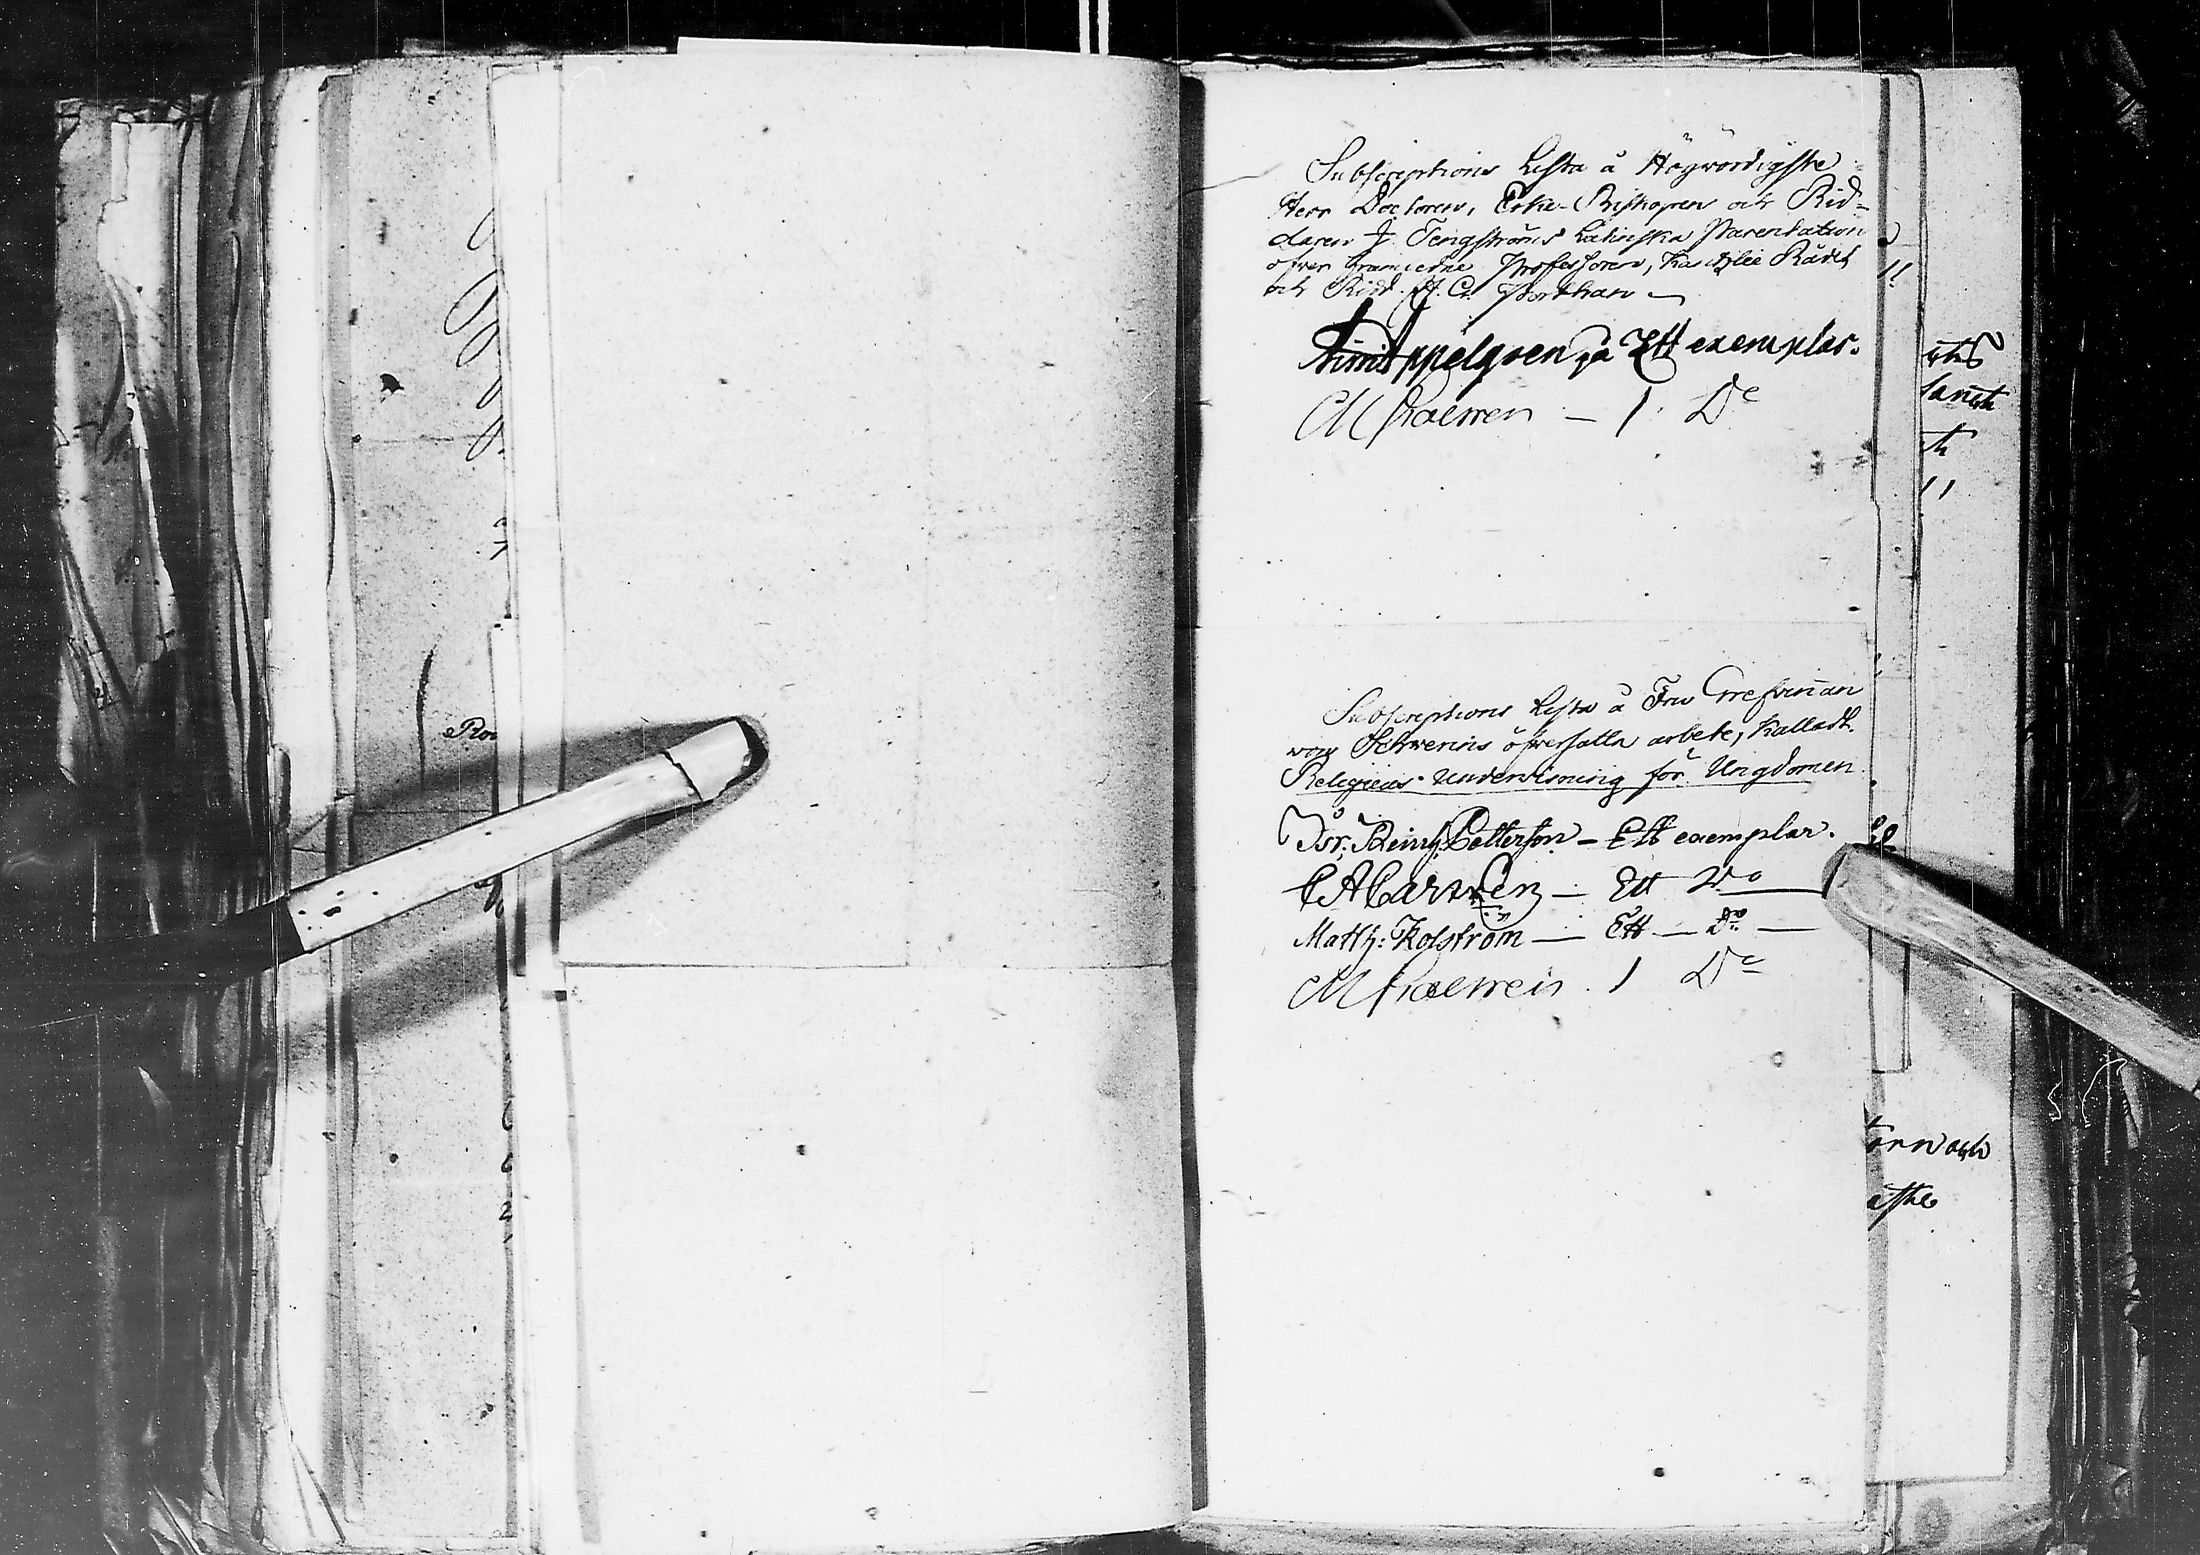 Subscriptions Lista å Högwördigste
Herr Doctoren, Erke-Biskopen och Rid-
daren J. Tengströms Latinska Parentation
öfver framledne Professoren, Kantzlie Rådet
och Ridd. H. G. Porthan
Appelgren på Ett exemplar.
1 Do
Subscriptions Lista å Fru Grefvinnan
von Schwerins öfversatta arbete, Kalladt.
Religions-Underwisning för Ungdomen.
Isr: Reinh: Petterson – Ett exemplar.
C A Carwen – Ett Do
Matth: Kolström – Ett – Do –
1 Do